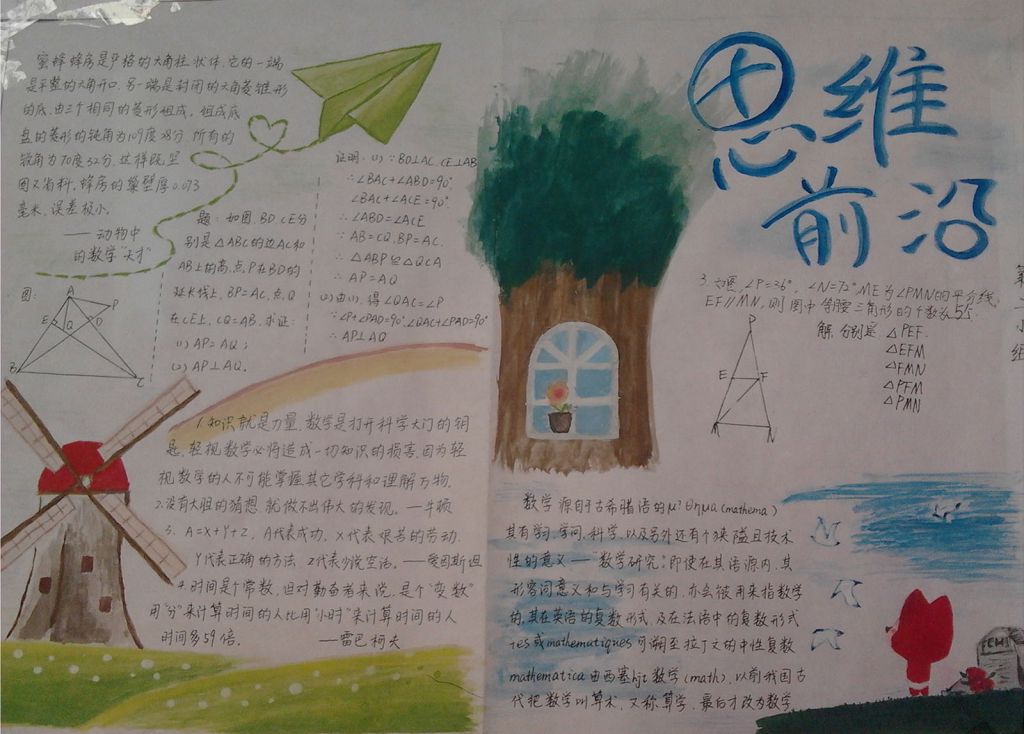 思维
前沿
蜜蜂蜂房是严格的六角柱状体,它的一端
是平整的六角开口,另一端是封闭的六角菱锥形
的底,由三个相同的菱形组成,组成底
盘的菱形的钝角为109度28分,所有的
锐角为70度32分,这样既坚
固又省料,蜂房的巢壁厚0.073
毫米,误差极小。
——动物中
的数学"天才"
图:
A
P
E
Q
D
B
C
题:如图,BD、CE分
别是△ABC的边AC和
AB上的高,点P在BD的
延长线上,BP=AC,点Q
在CE上,CQ=AB,求证:
(1) AP=AQ;
(2) AP⊥AQ.
证明:(1)∵BD⊥AC,CE⊥AB
∴∠BAC+∠ABD=90°
∠BAC+∠ACE=90°
∴∠ABD=∠ACE
∵AB=CQ,BP=AC.
∴△ABP≌△QCA
∴AP=AQ
(2)由(1)得∠QAC=∠P
∵∠P+∠PAD=90°,∠QAC+∠PAD=90°
∴AP⊥AQ
1.知识就是力量,数学是打开科学大门的钥
匙,轻视数学必将造成一切知识的损害,因为轻
视数学的人不可能掌握其它学科和理解万物.
2.没有大胆的猜想,就做不出伟大的发现。—牛顿
3. A=X+Y+Z,A代表成功,X代表艰苦的劳动,
Y代表正确的方法,Z代表少说空话。——爱因斯坦
4.时间是个常数,但对勤奋者来说,是个"变数"
用"分"来计算时间的人比用"小时"来计算时间的人
时间多59倍.
——雷巴柯夫
3.如图,∠P=36°,∠N=72°,ME为∠PMN的平分线,
EF//MN,则图中等腰三角形的个数为5个
解,分别是:△PEF
△EFM
△FMN
△PFM
△PMN
P
E
F
M
N
数学源自于古希腊语的μάθημα(mathema)
其有学习、学问、科学,以及另外还有个狭隘且技术
性的意义——"数学研究",即使在其语源内,其
形容词意义和与学习有关的,亦会被用来指数学
的,其在英语的复数形式,及在法语中的复数形式
+es或mathematiques可溯至拉丁文的中性复数
mathematica由西塞hjt数学(math),以前我国古
代把数学叫算术,又称算学,最后才改为数学